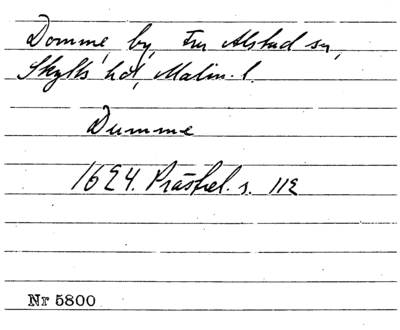 Domme, by, Fru Alstad sn,
Skytts hd, Malm. l.
Dumme
1624. Prästrel. s. 112
Nr 5800